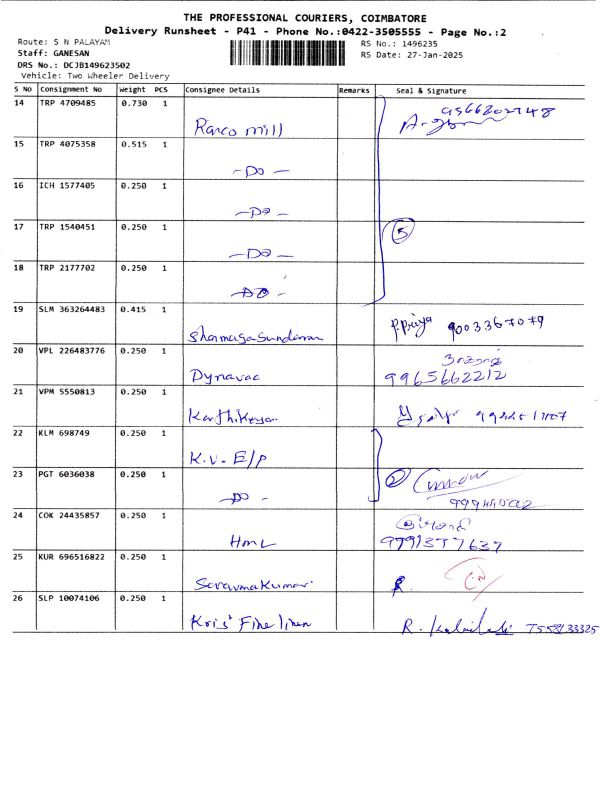 THE PROFESSIONAL COURIERS, COIMBATORE
Delivery Runsheet - P41 - Phone No.:0422-3505555 - Page No.:2
Route: S N PALAYAM
RS No.: 1496235
Staff: GANESAN
RS Date: 27-Jan-2025
DRS No.: DCJB149623502
Vehicle: Two Wheeler Delivery
S NO Consignment No Weight PCS Consignee Details Remarks Seal & Signature
14 TRP 4709485 0.730 1
Ranco mill
15 TRP 4075358 0.515 1
-Do-
16 ICH 1577405 0.250 1
-Do-
17 TRP 1540451 0.250 1
-Do- 5
18 TRP 2177702 0.250 1
-Do-
19 SLM 363264483 0.415 1
ShanmugaSundaram P.Priya 9003367079
20 VPL 226483776 0.250 1
Dynavac 9965662212
21 VPM 5550813 0.250 1
Karthikeyan
22 KLM 698749 0.250 1
K.V. E/P
23 PGT 6036038 0.250 1
-Do- 2
24 COK 24435857 0.250 1
HML 9791377637
25 KUR 696516822 0.250 1
SaravanaKumar
26 SLP 10074106 0.250 1
Kris' Fine linen R.